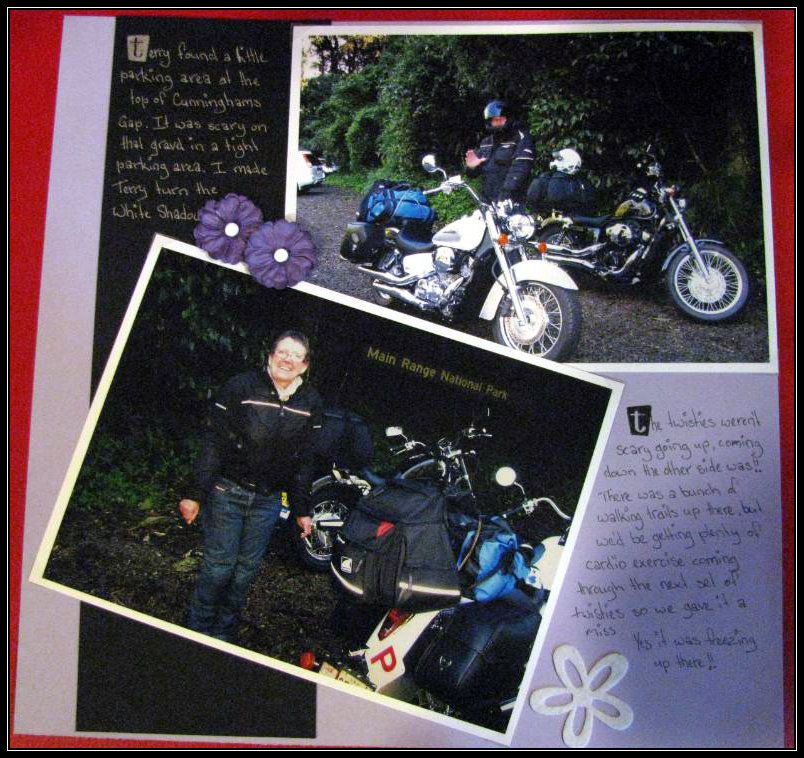 terry found a little
parking area at the
top of Cunninghams
Gap. It was scary on
that gravel in a tight
parking area. I made
Terry turn the
White Shadow
Main Range National Park
the twisties weren't
scary going up, coming
down the other side was!!
There was a bunch of
walking trails up there, but
we'd be getting plenty of
cardio exercise coming
through the next set of
twisties so we gave it a
miss
Yes it was freezing
up there!!
P